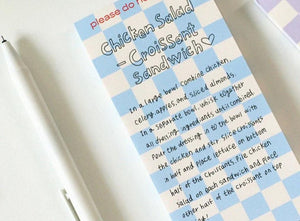 please do n
Chicken Salad
- Croissant
Sandwich
In a large bowl combine chicken,
celery, apples, and sliced almonds.
In a separate bowl, whisk together
all dressing ingredients until combined
Pour the dressing in to the bowl with
the chicken and stir. slice croissants
in half and place lettuce on bottom
half of the croissants. Pile chicken
salad on each sandwich and place
other half of the croissant on top